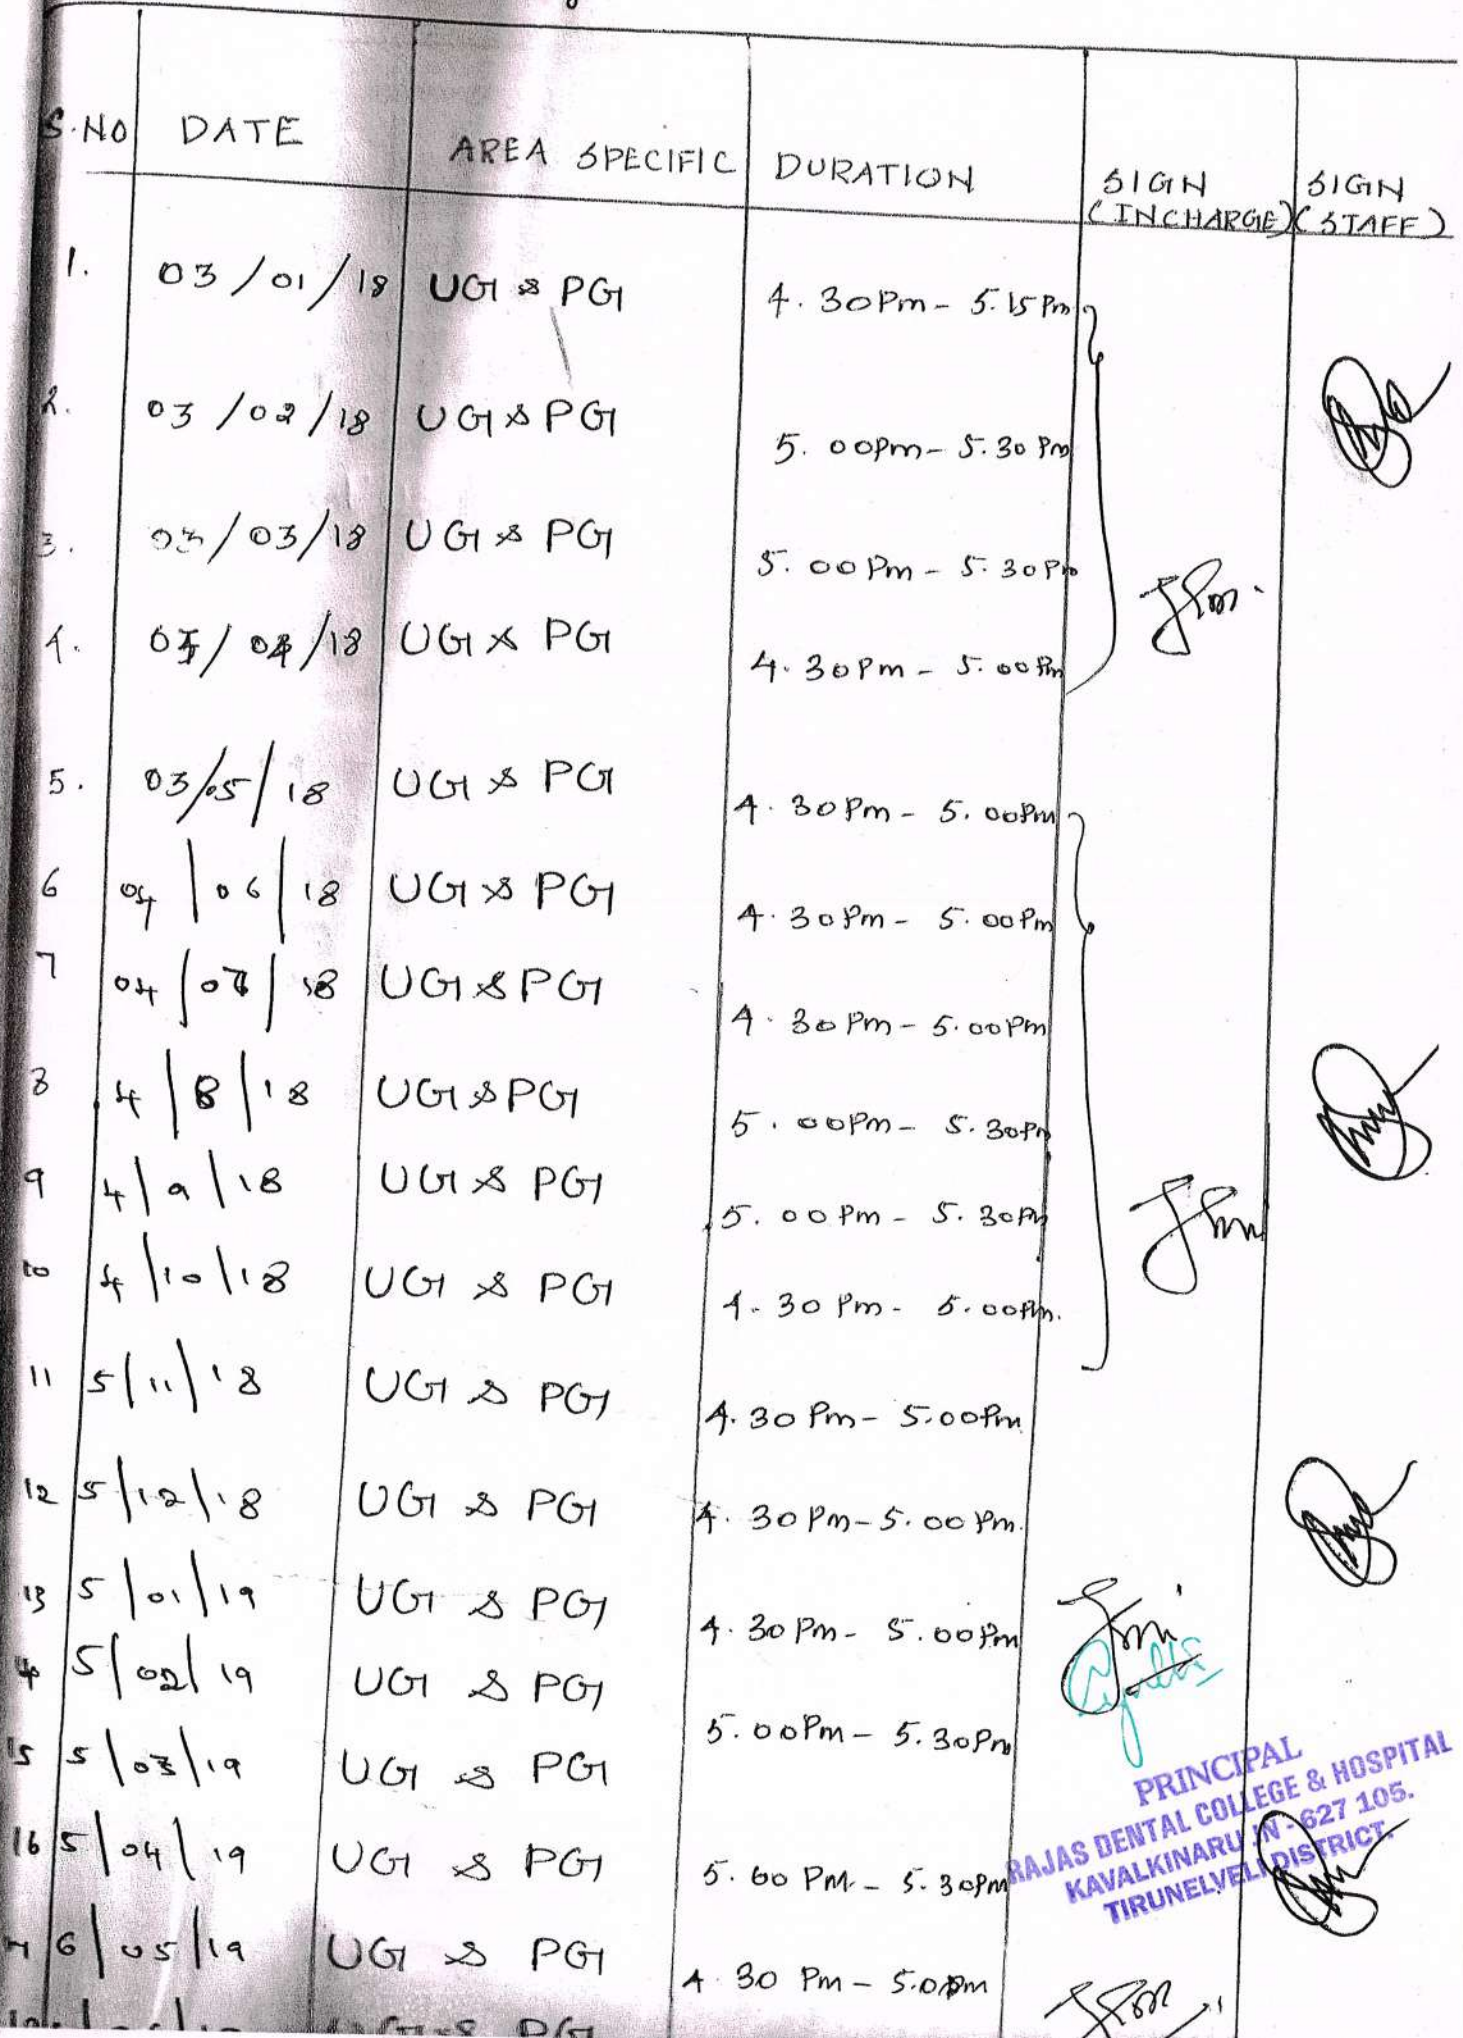 S.NO DATE AREA SPECIFIC DURATION SIGN (INCHARGE) SIGN (STAFF)
1. 03/01/18 UG & PG 4.30Pm - 5.15Pm
2. 03/02/18 UG & PG 5.00Pm - 5.30Pm
3. 03/03/18 UG & PG 5.00Pm - 5.30Pm
4. /04/18 UG & PG 4.30Pm - 5.00Pm
5. 03/05/18 UG & PG 4.30Pm - 5.00Pm
6 04/06/18 UG & PG 4.30Pm - 5.00Pm
7 04/07/18 UG & PG 4.30Pm - 5.00Pm
8 4/8/18 UG & PG 5.00Pm - 5.30Pm
9 4/9/18 UG & PG 5.00Pm - 5.30Pm
10 4/10/18 UG & PG 4.30Pm - 5.00Pm.
11 5/11/18 UG & PG 4.30Pm - 5.00Pm
12 5/12/18 UG & PG 4.30Pm - 5.00Pm.
13 5/01/19 UG & PG 4.30Pm - 5.00Pm
5/02/19 UG & PG 5.00Pm - 5.30Pm
15 5/03/19 UG & PG
16 5/04/19 UG & PG 5.00 PM - 5.30Pm
6/05/19 UG & PG 4.30 Pm - 5.00Pm
UG & PG
PRINCIPAL
RAJAS DENTAL COLLEGE & HOSPITAL
KAVALKINARU JN - 627 105.
TIRUNELVELI DISTRICT.